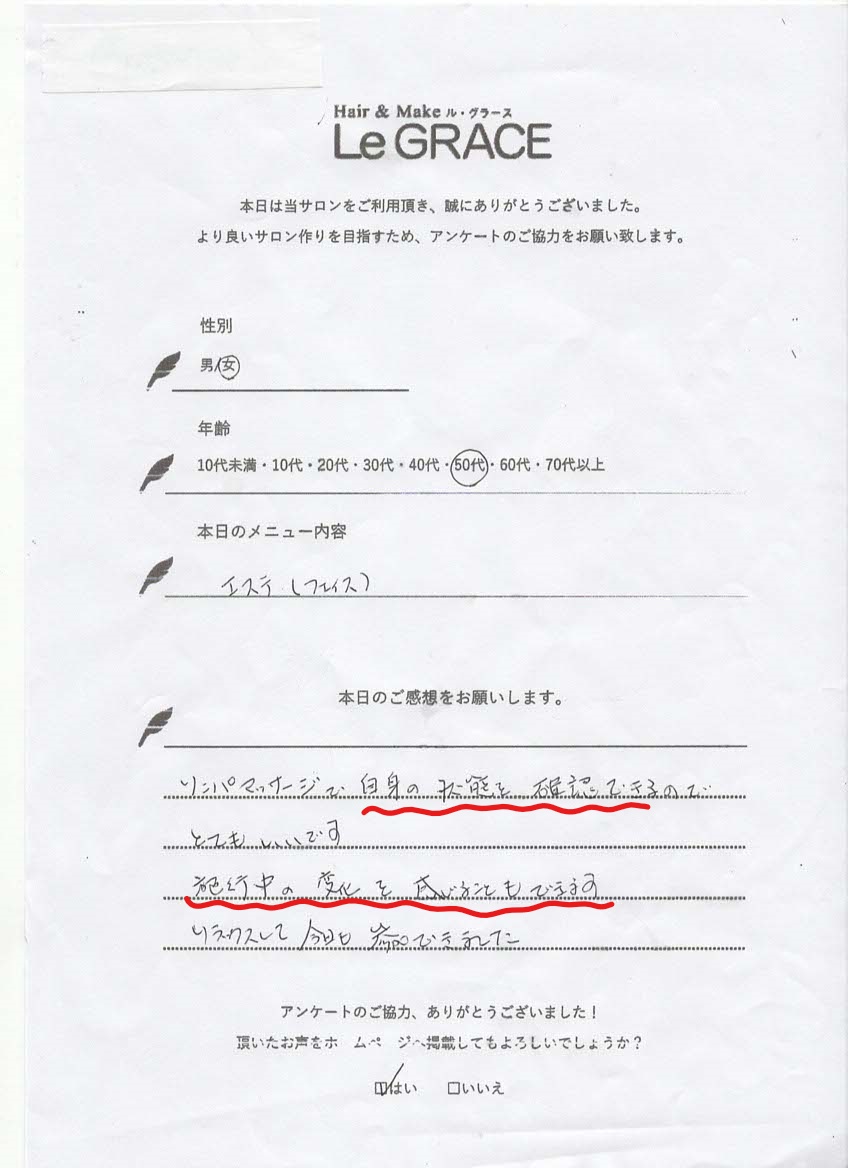 Hair & Make ル・グラース
Le GRACE
本日は当サロンをご利用頂き、誠にありがとうございました。
より良いサロン作りを目指すため、アンケートのご協力をお願い致します。
性別
男/女
年齢
10代未満・10代・20代・30代・40代・50代・60代・70代以上
本日のメニュー内容
エステ（フェイス）
本日のご感想をお願いします。
リンパマッサージで自身の状態を確認できるので
とてもいいです
施行中の変化を感じることもできます
リラックスして今日も参加できました
アンケートのご協力、ありがとうございました！
頂いたお声をホームページへ掲載してもよろしいでしょうか？
☑はい □いいえ